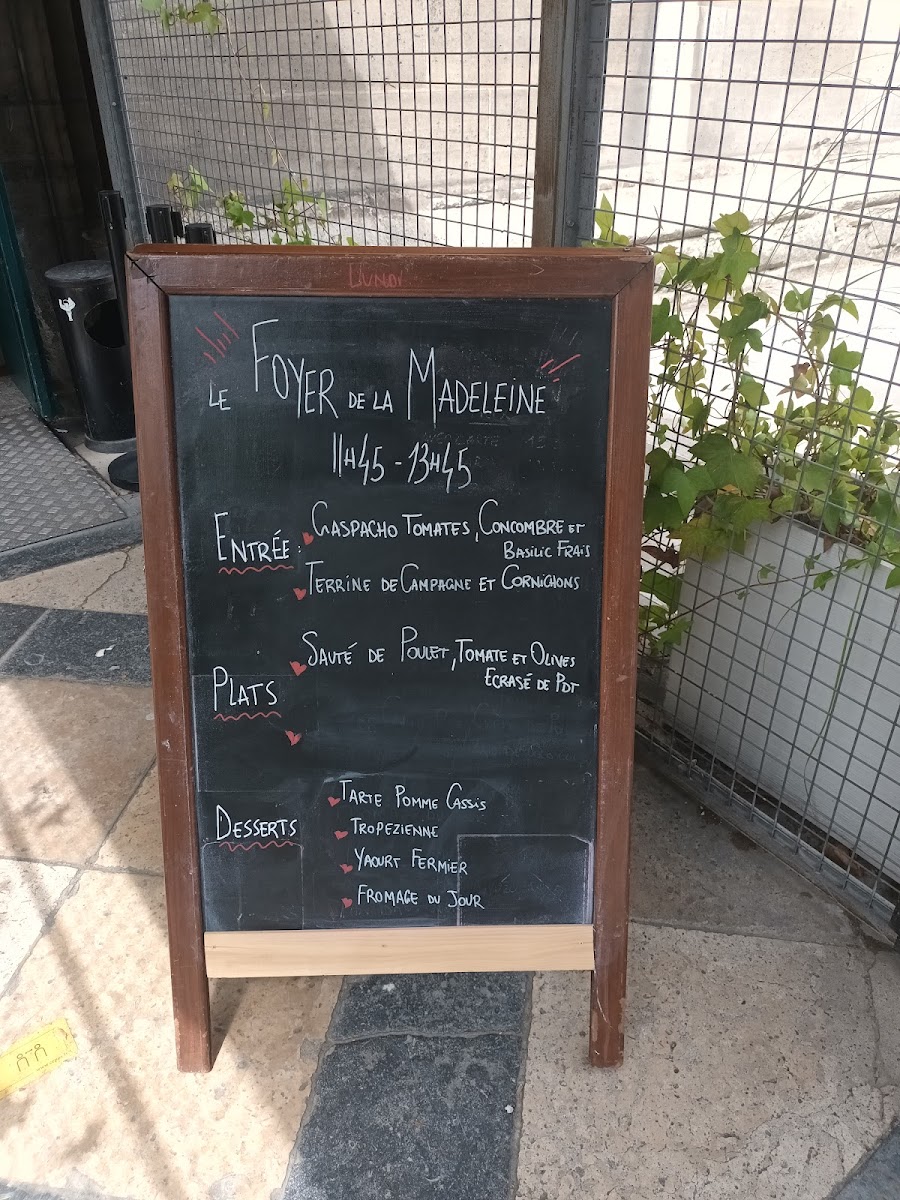 LUNDI
LE FOYER DE LA MADELEINE
11H45 - 13H45
ENTRÉE :
GASPACHO TOMATES, CONCOMBRE ET
BASILIC FRAIS
TERRINE DE CAMPAGNE ET CORNICHONS
PLATS
SAUTÉ DE POULET, TOMATE ET OLIVES
ECRASÉ DE PDT
DESSERTS
TARTE POMME CASSIS
TROPEZIENNE
YAOURT FERMIER
FROMAGE DU JOUR